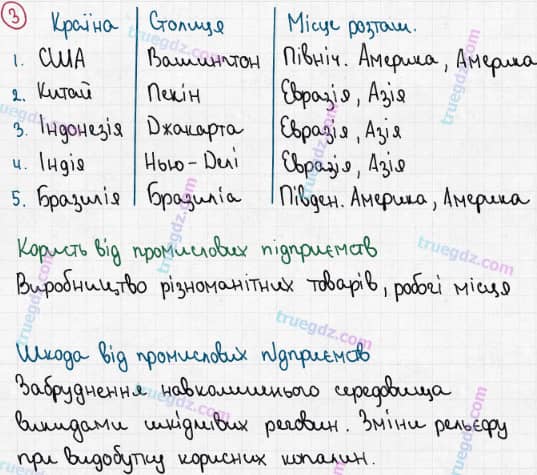 3
Країна Столиця Місце розташ.
1. США Вашингтон Північ. Америка, Америка
2. Китай Пекін Євразія, Азія
3. Індонезія Джакарта Євразія, Азія
4. Індія Нью-Делі Євразія, Азія
5. Бразилія Бразиліа Півден. Америка, Америка
Користь від промислових підприємств
Виробництво різноманітних товарів, робочі місця
Шкода від промислових підприємств
Забруднення навколишнього середовища
викидами шкідливих речовин. Зміни рельєфу
при видобутку корисних копалин.
truegdz.com
truegdz.com
truegdz.com
truegdz.com
truegdz.com
truegdz.com
truegdz.com
truegdz.com
truegdz.com
truegdz.com